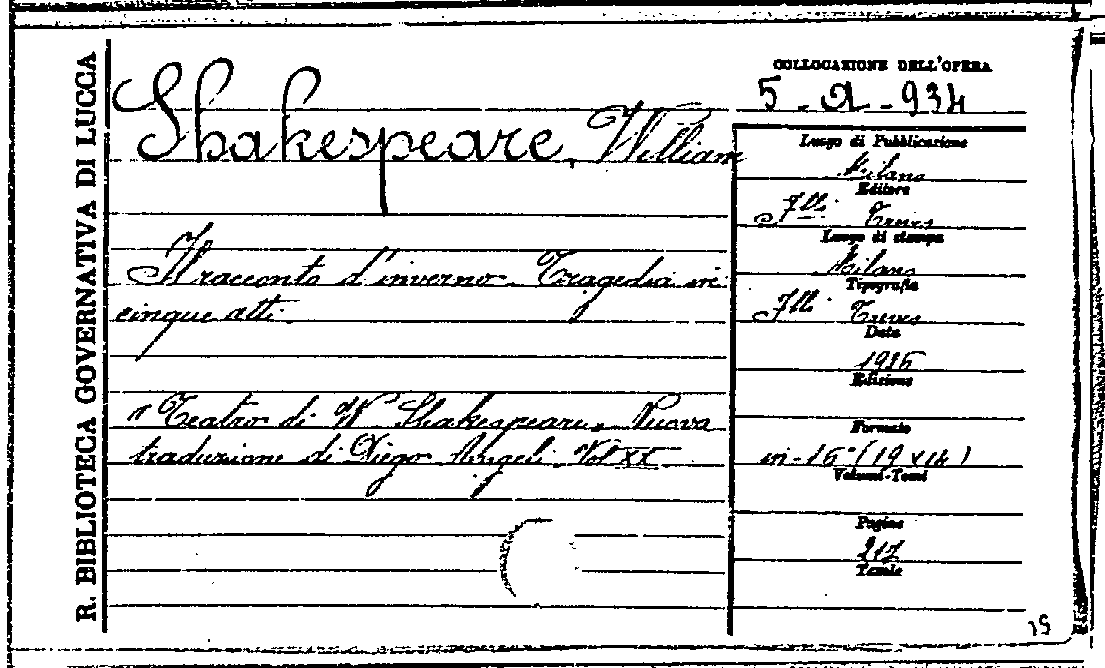 R. BIBLIOTECA GOVERNATIVA DI LUCCA
Shakespeare, William
Il racconto d'inverno. Tragedia in
cinque atti.
"Teatro di W. Shakespeare. Nuova
traduzione di Diego Angeli. Vol XX
COLLOCAZIONE DELL'OPERA
5 - A - 934
Luogo di Pubblicazione
Milano
Editore
F.lli Treves
Luogo di stampa
Milano
Tipografia
F.lli Treves
Data
Edizione
Formato
in-16° (19 x 12)
Volumi-Tomi
Pagine
217
Tavole